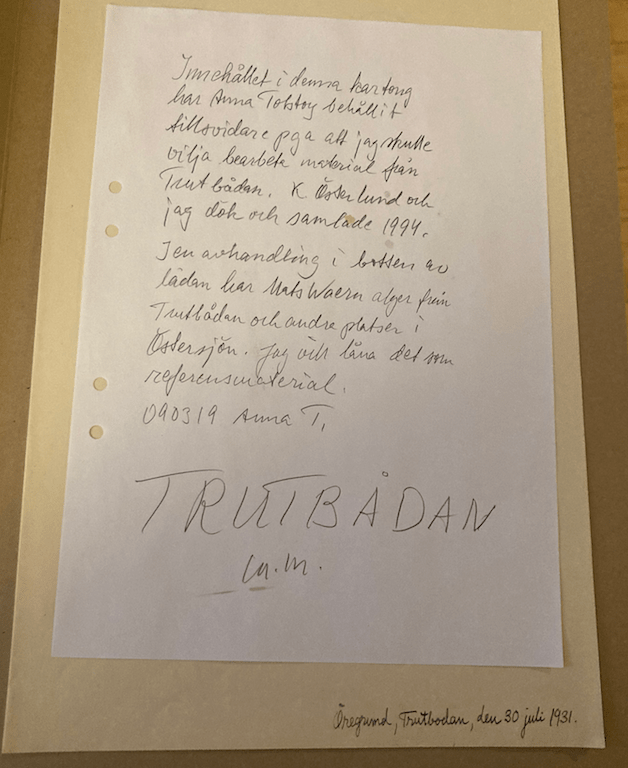 Innehållet i denna kartong
har Anna Tolstoy behållit
tillsvidare pga att jag skulle
vilja bearbeta material från
Trutbådan. K Österlund och
jag dök och samlade 1994.
I en avhandling i botten av
lådan har Mats Waern alger från
Trutbådan och andra platser i
Östersjön. Jag vill låna det som
referensmaterial.
090319 Anna T,
TRUTBÅDAN
m.m.
Öregrund, Trutbodan, den 30 juli 1931.